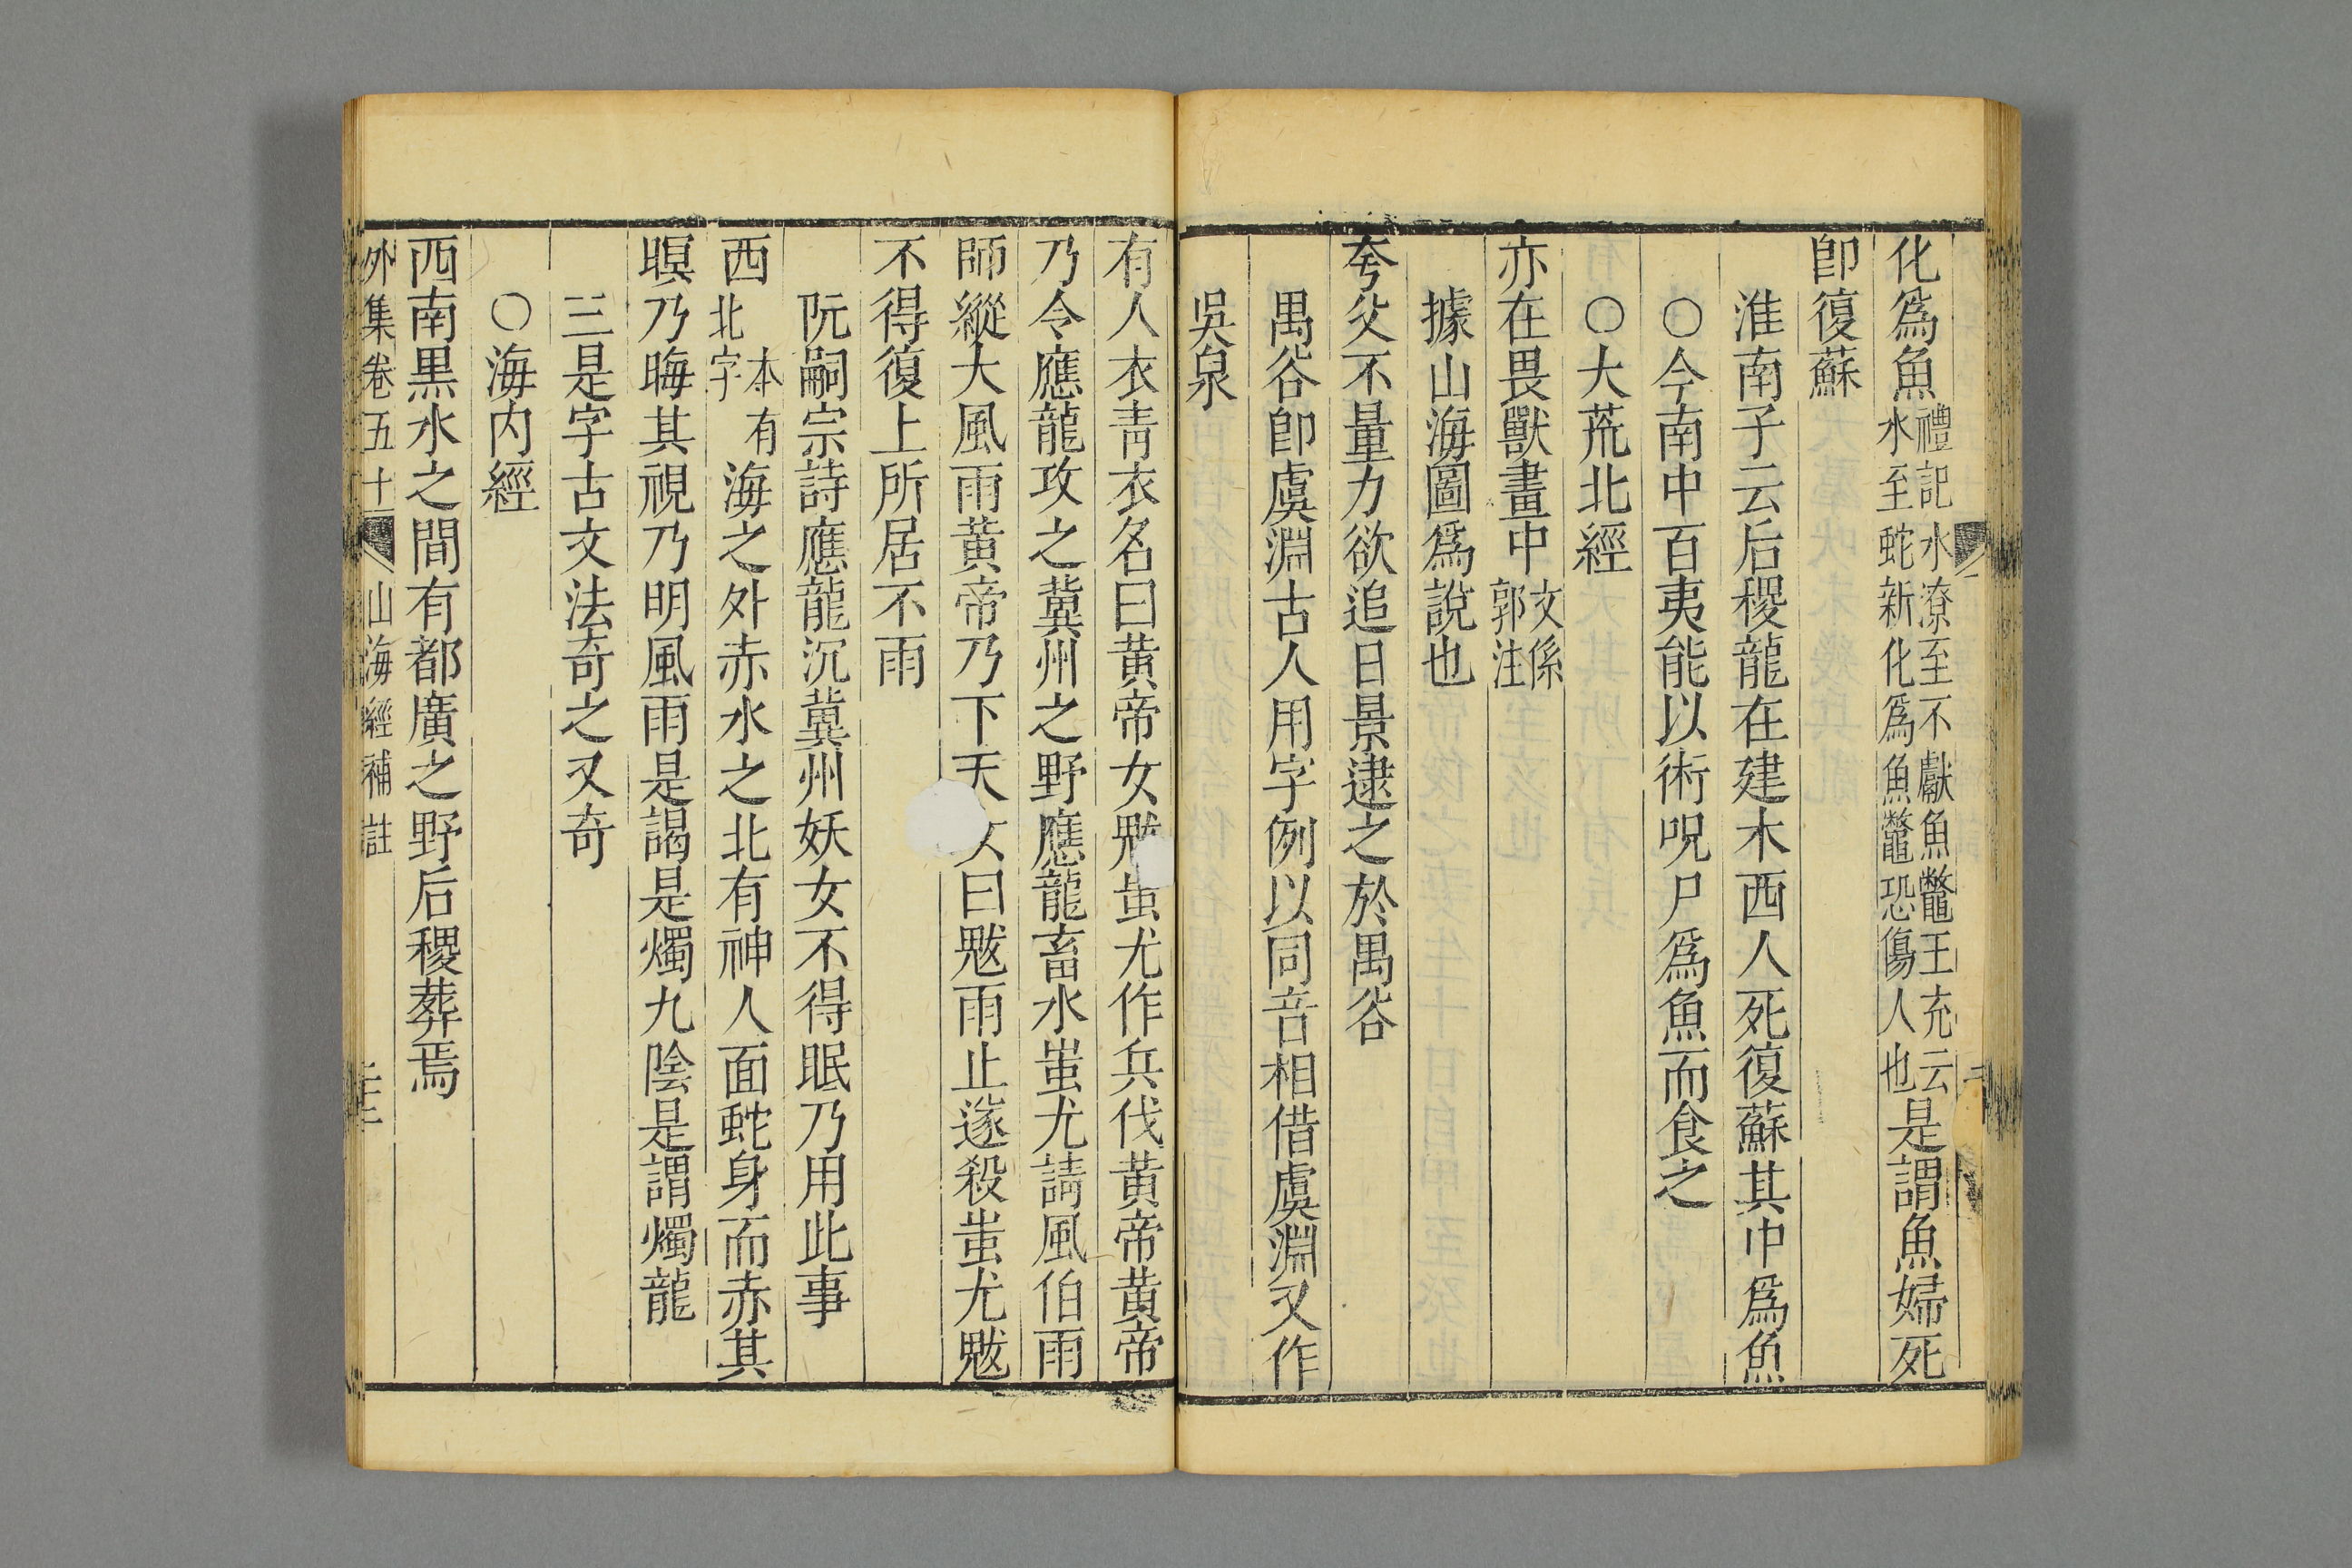 化爲魚禮記水潦至不獻魚鼈王充云水至蛇新化爲魚鼈恐傷人也是謂魚婦死
卽復蘇
淮南子云后稷龍在建木西人死復蘇其中爲魚
○今南中百夷能以術呪尸爲魚而食之
○大荒北經
亦在畏獸畫中文係郭注
據山海圖爲說也
夸父不量力欲追日景逮之於禺谷
禺谷卽虞淵古人用字例以同音相借虞淵又作
吳泉
有人衣靑衣名曰黃帝女魃蚩尤作兵伐黃帝黃帝
乃令應龍攻之冀州之野應龍畜水蚩尤請風伯雨
師縱大風雨黃帝乃下天女曰魃雨止遂殺蚩尤魃
不得復上所居不雨
阮嗣宗詩應龍沉冀州妖女不得眠乃用此事
西本有北字海之外赤水之北有神人面蛇身而赤其
暝乃晦其視乃明風雨是謁是燭九陰是謂燭龍
三是字古文法奇之又奇
○海內經
西南黑水之間有都廣之野后稷葬焉
外集卷五十一 山海經補註